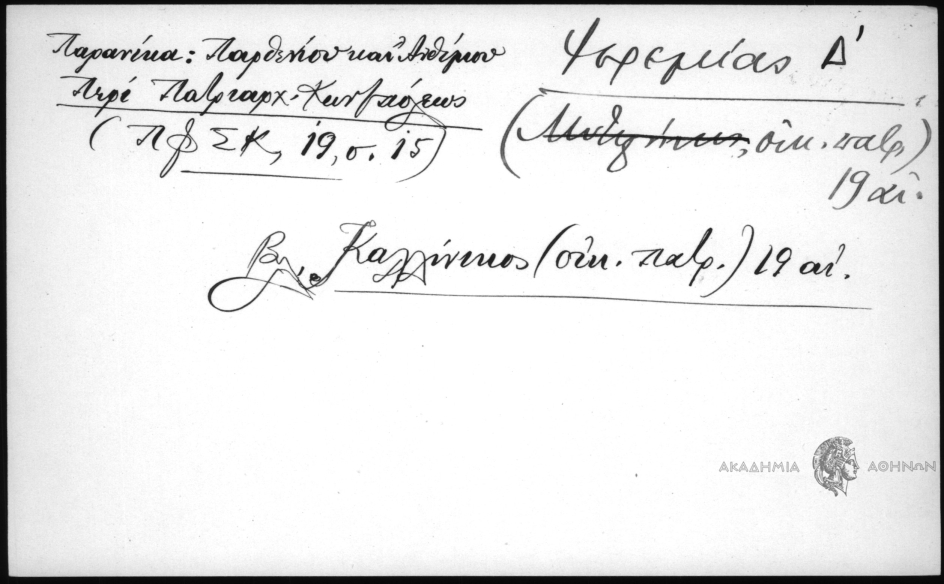 Παρανίκα: Παρθενίου καὶ Ἀνθίμου
Περὶ Πατριαρχ. Κων/πόλεως
(ΠΦΣΚ, 19, σ. 15)
Ἱερεμίας Δ'
(Μυτιλήνης, οἰκ. πατρ.)
19 αἰ.
Βλ. Καλλίνικος (οἰκ. πατρ.) 19 αἰ.
ΑΚΑΔΗΜΙΑ ΑΘΗΝΩΝ